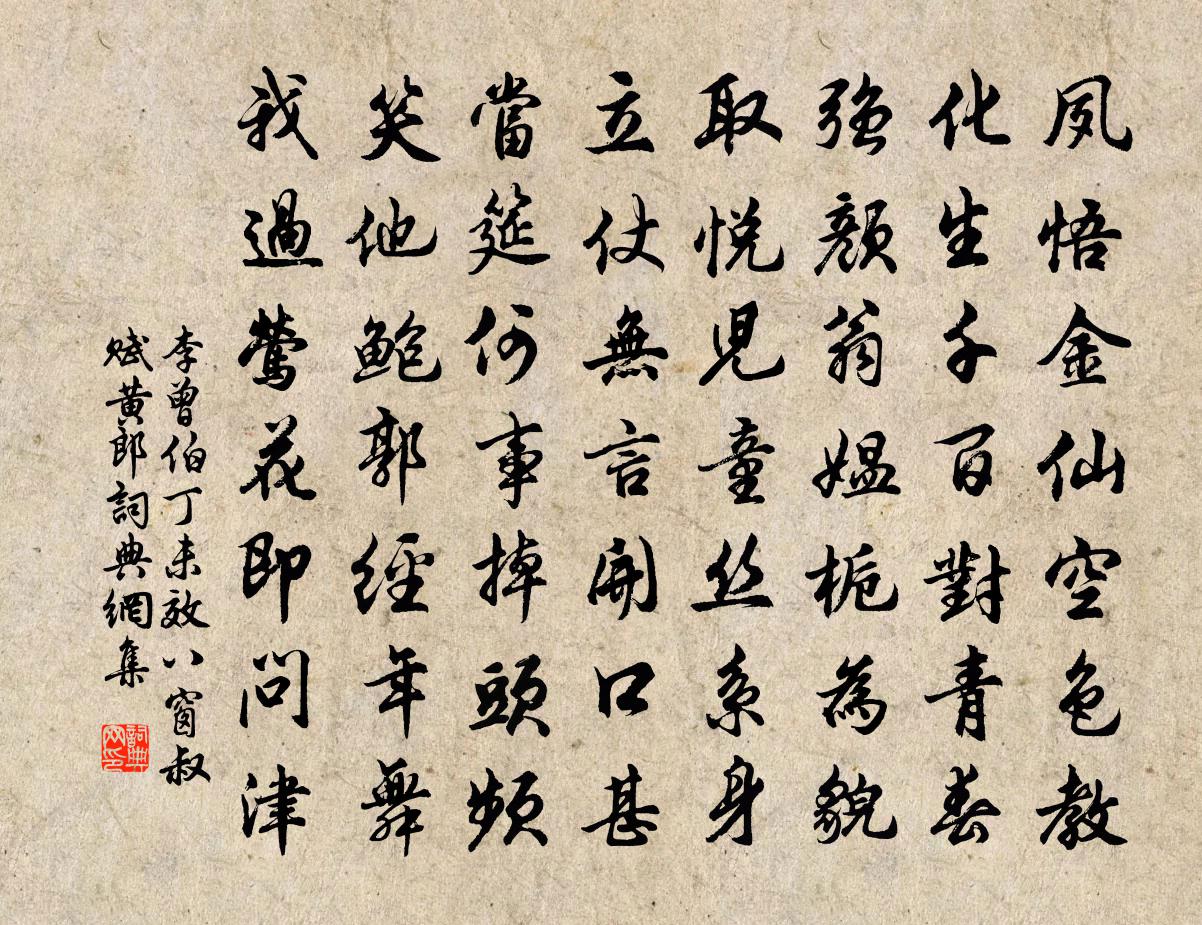 夙悟金仙空色教
化生千百對青春
強顏翁媼梔為貌
取悅兒童丝系身
立仗無言開口甚
當筵何事掉頭頻
笑他鮑郭經年舞
我過鶯花即問津
李曾伯丁未效八窗叔
賦黃郎詞典網集
詞典网印